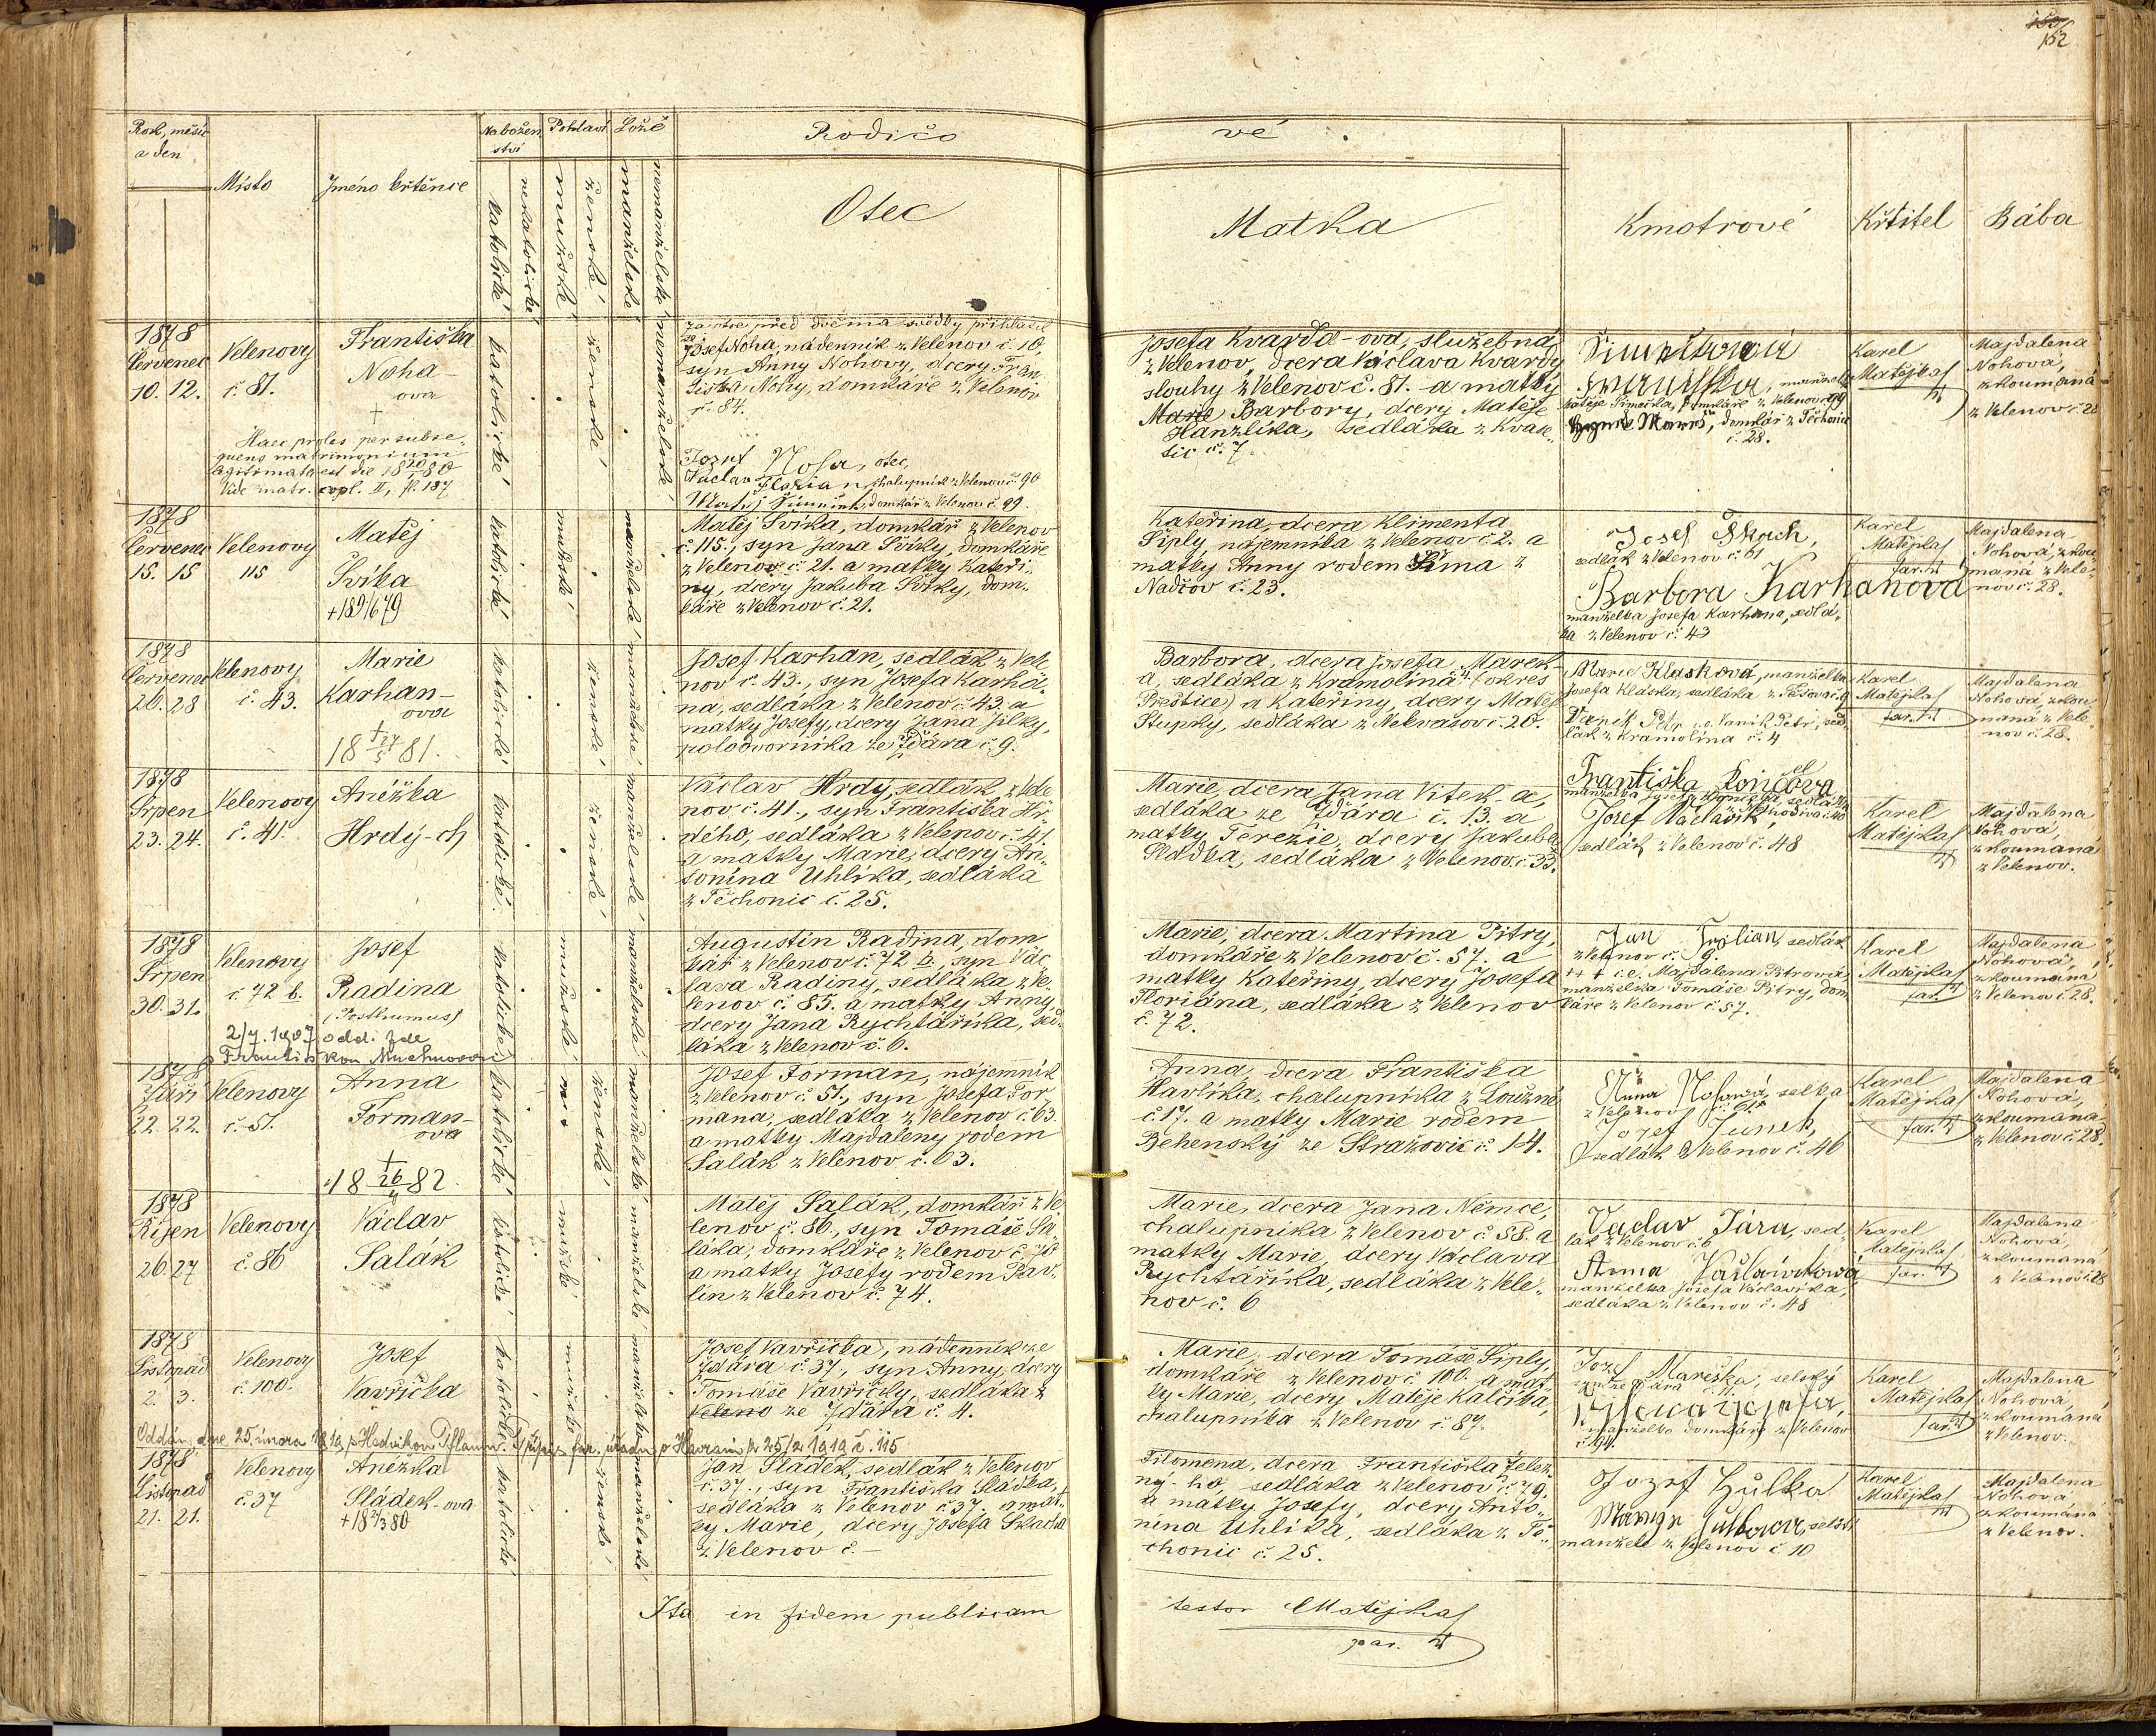 152
Rok, měsíc
a den
Místo
Jméno křtěnce
Nábožen
ství
katolické
nekatolické
Pohlaví
mužské
ženské
Lože
manželské
nemanželské
Rodičo
vé
Otec
Matka
Kmotrové
Křtitel
Bába
1878
Červenec
10. 12.
Velenovy
č. 81.
Františka
Noha-
ova
†
Haec proles per subse-
quens matrimonium
legitimata est die
Vide matr. copl. II, fl. 187
katolické
ženské
nemanželské
Za otce před dvěma svědky přihlásil
se Josef Noha, nádenník z Velenov č. 10,
syn Anny Nohovy, dcery Fran
tiška Nohy, domkáře z Velenov
č. 84.
Jozef Noha, otec,
Václav Florian, chalupník z Velenov č. 90
Matěj Šimeček, domkář z Velenov č. 99.
Josefa Kvarda-ova, služebná
z Velenov, dcera Václava Kvardy
slouhy z Velenov č. 81. a matky
Marie Barbory, dcery Matěje
Hanzlíka, sedláka z Kvase-
tic č. 7.
Františka, manželka
Matěje Šimečka, domkáře z Velenov č. 99
domkář z Těchonic
č. 28.
Karel
Matějka
Majdalena
Nohová,
zkoumaná
z Velenov č. 28
1878
Červenec
15. 15
Velenovy
115
Matěj
Svíka
katolické
mužské
manželské
Matěj Svíka, domkář z Velenov
č. 115., syn Jana Svíky, domkáře
z Velenov č. 21. a matky Kateři-
ny, dcery Jakuba Svíky, dom-
káře z Velenov č. 21.
Kateřina, dcera Klimenta
Šiply, nájemníka z Velenov č. 2. a
matky Anny rodem Šíma z
Nadčov č. 23.
Josef Škach,
sedlák z Velenov č. 61
Barbora Karhanová
manželka Josefa Karhana, sedlá-
ka z Velenov č. 43
Karel
Matějka
far.
Majdalena
Nohová, zkou
maná z Vele-
nov č. 28.
1878
Červenec
26. 28
Velenovy
č. 43.
Marie
Karhan-
ova
†
18 27/5 81.
katolické
ženské
manželské
Josef Karhan, sedlák z Vele
nov č. 43., syn Josefa Karha-
na, sedláka z Velenov č. 43. a
matky Josefy, dcery Jana Jílky,
polodvorníka ze Ždára č. 9.
Barbora, dcera Josefa Marek-
a, sedláka z Kramolína 4. (okres
Přeštice) a Kateřiny, dcery Matěje
Stupky, sedláka z Nekvasov č. 20.
Marie Klasková, manželka
Josefa Kláska, sedláka z
Vaněk Petr, sed
lák z Kramolína č. 4
Karel
Matějka
far.
Majdalena
Nohová, zkou
maná z Vele
nov č. 28.
1878
Srpen
23. 24.
Velenovy
č. 41.
Anéžka
Hrdý-ch
katolické
ženské
manželské
Václav Hrdý, sedlák z Vele
nov č. 41., syn Františka Hr-
dého, sedláka z Velenov č. 41.
a matky Marie, dcery An-
tonína Uhlíka, sedláka
z Těchonic č. 25.
Marie, dcera Jana Vítek-a,
sedláka ze Ždára č. 13. a
matky Terezie, dcery Jakuba
Sládka, sedláka z Velenov č. 33.
Františka
Josef Václavík,
sedlák z Velenov č. 48
Karel
Matějka
Majdalena
Nohová,
zkoumaná
z Velenov.
1878
Srpen
30. 31.
Velenovy
č. 72 b.
Josef
Radina
(Posthumus)
2/7. 1907 odd. zde
katolické
mužské
manželské
Augustin Radina, dom
kář z Velenov č. 72 b., syn Vác
lava Radiny, sedláka z Ve-
lenov č. 85. a matky Anny,
dcery Jana Rychtaříka, sed-
láka z Velenov č. 6.
Marie, dcera Martina Pitry,
domkáře z Velenov č. 57. a
matky Kateřiny, dcery Josefa
Floriána, sedláka z Velenov
č. 72.
Jan sedlák
z Velenov č. 9.
+++ i.e. Majdalena Pitrová,
manželka Tomáše Pitry, dom
káře z Velenov č. 57.
Karel
Matějka
far.
Majdalena
Nohová,
zkoumaná
z Velenov č. 28.
1878
Září
22. 22.
Velenovy
č. 51.
Anna
Forman-
ova
†
18 26/4 82.
katolické
ženské
manželské
Josef Forman, nájemník
z Velenov č. 51., syn Josefa For
mana, sedláka z Velenov č. 63.
a matky Majdaleny rodem
Salák z Velenov č. 63.
Anna, dcera Františka
Havlíka, chalupníka z Loužné
č. 17. a matky Marie rodem
Behenský ze Stražovic č. 14.
Anna Nohová, selka
z Velenov
Jozef Junek,
sedlák z Velenov č. 46
Karel
Matějka
far.
Majdalena
Nohová,
zkoumaná
z Velenov č. 28.
1878
Říjen
26. 27
Velenovy
č. 86
Václav
Salák
katolické
mužské
manželské
Matěj Salák, domkář z Ve
lenov č. 86., syn Tomáše Sa-
láka, domkáře z Velenov č. 70
a matky Josefy rodem Pav-
lín z Velenov č. 74.
Marie, dcera Jana Němce,
chalupníka z Velenov č. 58. a
matky Marie, dcery Václava
Rychtaříka, sedláka z Vele-
nov č. 6
Vaclav Jára, sed-
lák z Velenov č. 6
Anna
manželka Josefa Václavíka,
sedláka z Velenov č. 48
Karel
Matějka
far.
Majdalena
Nohová,
zkoumaná
z Velenov č. 28
1878
Listopad
2. 3.
Velenovy
č. 100.
Josef
Vavřička
katolické
mužské
manželské
Josef Vavřička, nádenník ze
Ždára č. 37., syn Anny, dcery
Tomáše Vavřičky, sedláka z
Veleno ze Ždára č. 4.
Marie, dcera Tomáše Šiply,
domkáře z Velenov č. 100. a mat-
ky Marie, dcery Matěje Kalčíka,
chalupníka z Velenov č. 87.
Jozef Mareška, selský
syn ze Ždára č. 11.
manželka domkáře z Velenov
Karel
Matějka
far.
Majdalena
Nohová,
zkoumaná
z Velenov.
Oddán dne 25. února 1919 s Hedvikou
25/2 1919 č. 115
1878
Listopad
21. 21.
Velenovy
č. 37
Anežka
Sládek-ova
katolické
ženské
manželské
Jan Sládek, sedlák z Velenov
č. 37., syn Františka Sládka,
sedláka z Velenov č. 37. a mat-
ky Marie, dcery Josefa Skacha
z Velenov č. –
Filomena, dcera Františka Želez-
ný-ho, sedláka z Velenov č. 79.
a matky Josefy, dcery Anto-
nína Uhlíka, sedláka z Tě-
chonic č. 25.
Jozef Hůlka
manželé z Velenov č. 10
Karel
Matějka
Majdalena
Nohová
zkoumaná
z Velenov.
Ita in fidem publicam
testor Matějka
par.